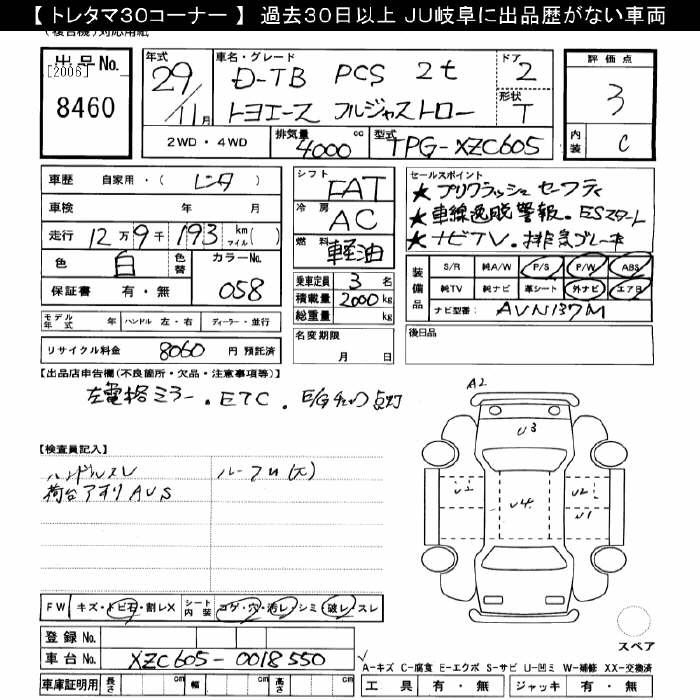 【 トレタマ30コーナー 】 過去30日以上 JU岐阜に出品歴がない車両
(複合機)対応用紙
出品No.
[2006]
8460
年式
29
11月
車名・グレード
D-TB PCS 2t
トヨエース フルジャストロー
ドア
2
形状
T
評価点
3
内装
C
2WD・4WD
排気量
4000
cc
型式
TPG-XZC605
車歴 自家用・( レンタ )
車検 年 月
走行 12万9千193 km マイル( )
色
白
色替
カラーNo.
058
保証書 有・無
モデル年式 年 ハンドル 左・右 ディーラー・並行
リサイクル料金 8060 円 預託済
シフト
FAT
冷房
AC
燃料
軽油
乗車定員 3 名
積載量 2000 kg
総重量 kg
名変期限
月 日
セールスポイント
★プリクラッシュセーフティ
★車線逸脱警報.ESスタート
★ナビTV.排気ブレーキ
装備品
S/R 純A/W P/S P/W ABS
純TV 純ナビ 革シート 外ナビ エアB
ナビ型番: AVN137M
後日品
【出品店申告欄(不良箇所・欠品・注意事項等)】
左電格ミラー.ETC.E/Gチェック点灯
【検査員記入】
ハンドルスレ
荷台アオリAUS
ルーフU(大)
A2
U3
U2
U4
U2
U1
FW キズ・トビ石・割レX
シート内装 コゲ・穴・汚レ・シミ・破レ・スレ
登録No.
車台No. XZC605-0018550
車庫証明用 長さ cm 幅 cm 高さ cm
スペア
A-キズ C-腐食 E-エクボ S-サビ U-凹ミ W-補修 XX-交換済
工具 有・無 ジャッキ 有・無